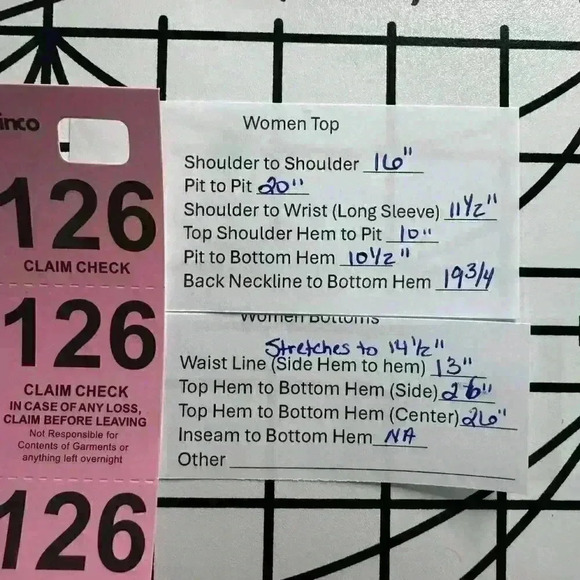 inco
126
CLAIM CHECK
126
CLAIM CHECK
IN CASE OF ANY LOSS,
CLAIM BEFORE LEAVING
Not Responsible for
Contents of Garments or
anything left overnight
126
Women Top
Shoulder to Shoulder 16"
Pit to Pit 20"
Shoulder to Wrist (Long Sleeve) 11 1/2"
Top Shoulder Hem to Pit 10"
Pit to Bottom Hem 10 1/2"
Back Neckline to Bottom Hem 19 3/4
Women Bottoms
Stretches to 14 1/2"
Waist Line (Side Hem to hem) 13"
Top Hem to Bottom Hem (Side) 26"
Top Hem to Bottom Hem (Center) 26"
Inseam to Bottom Hem NA
Other